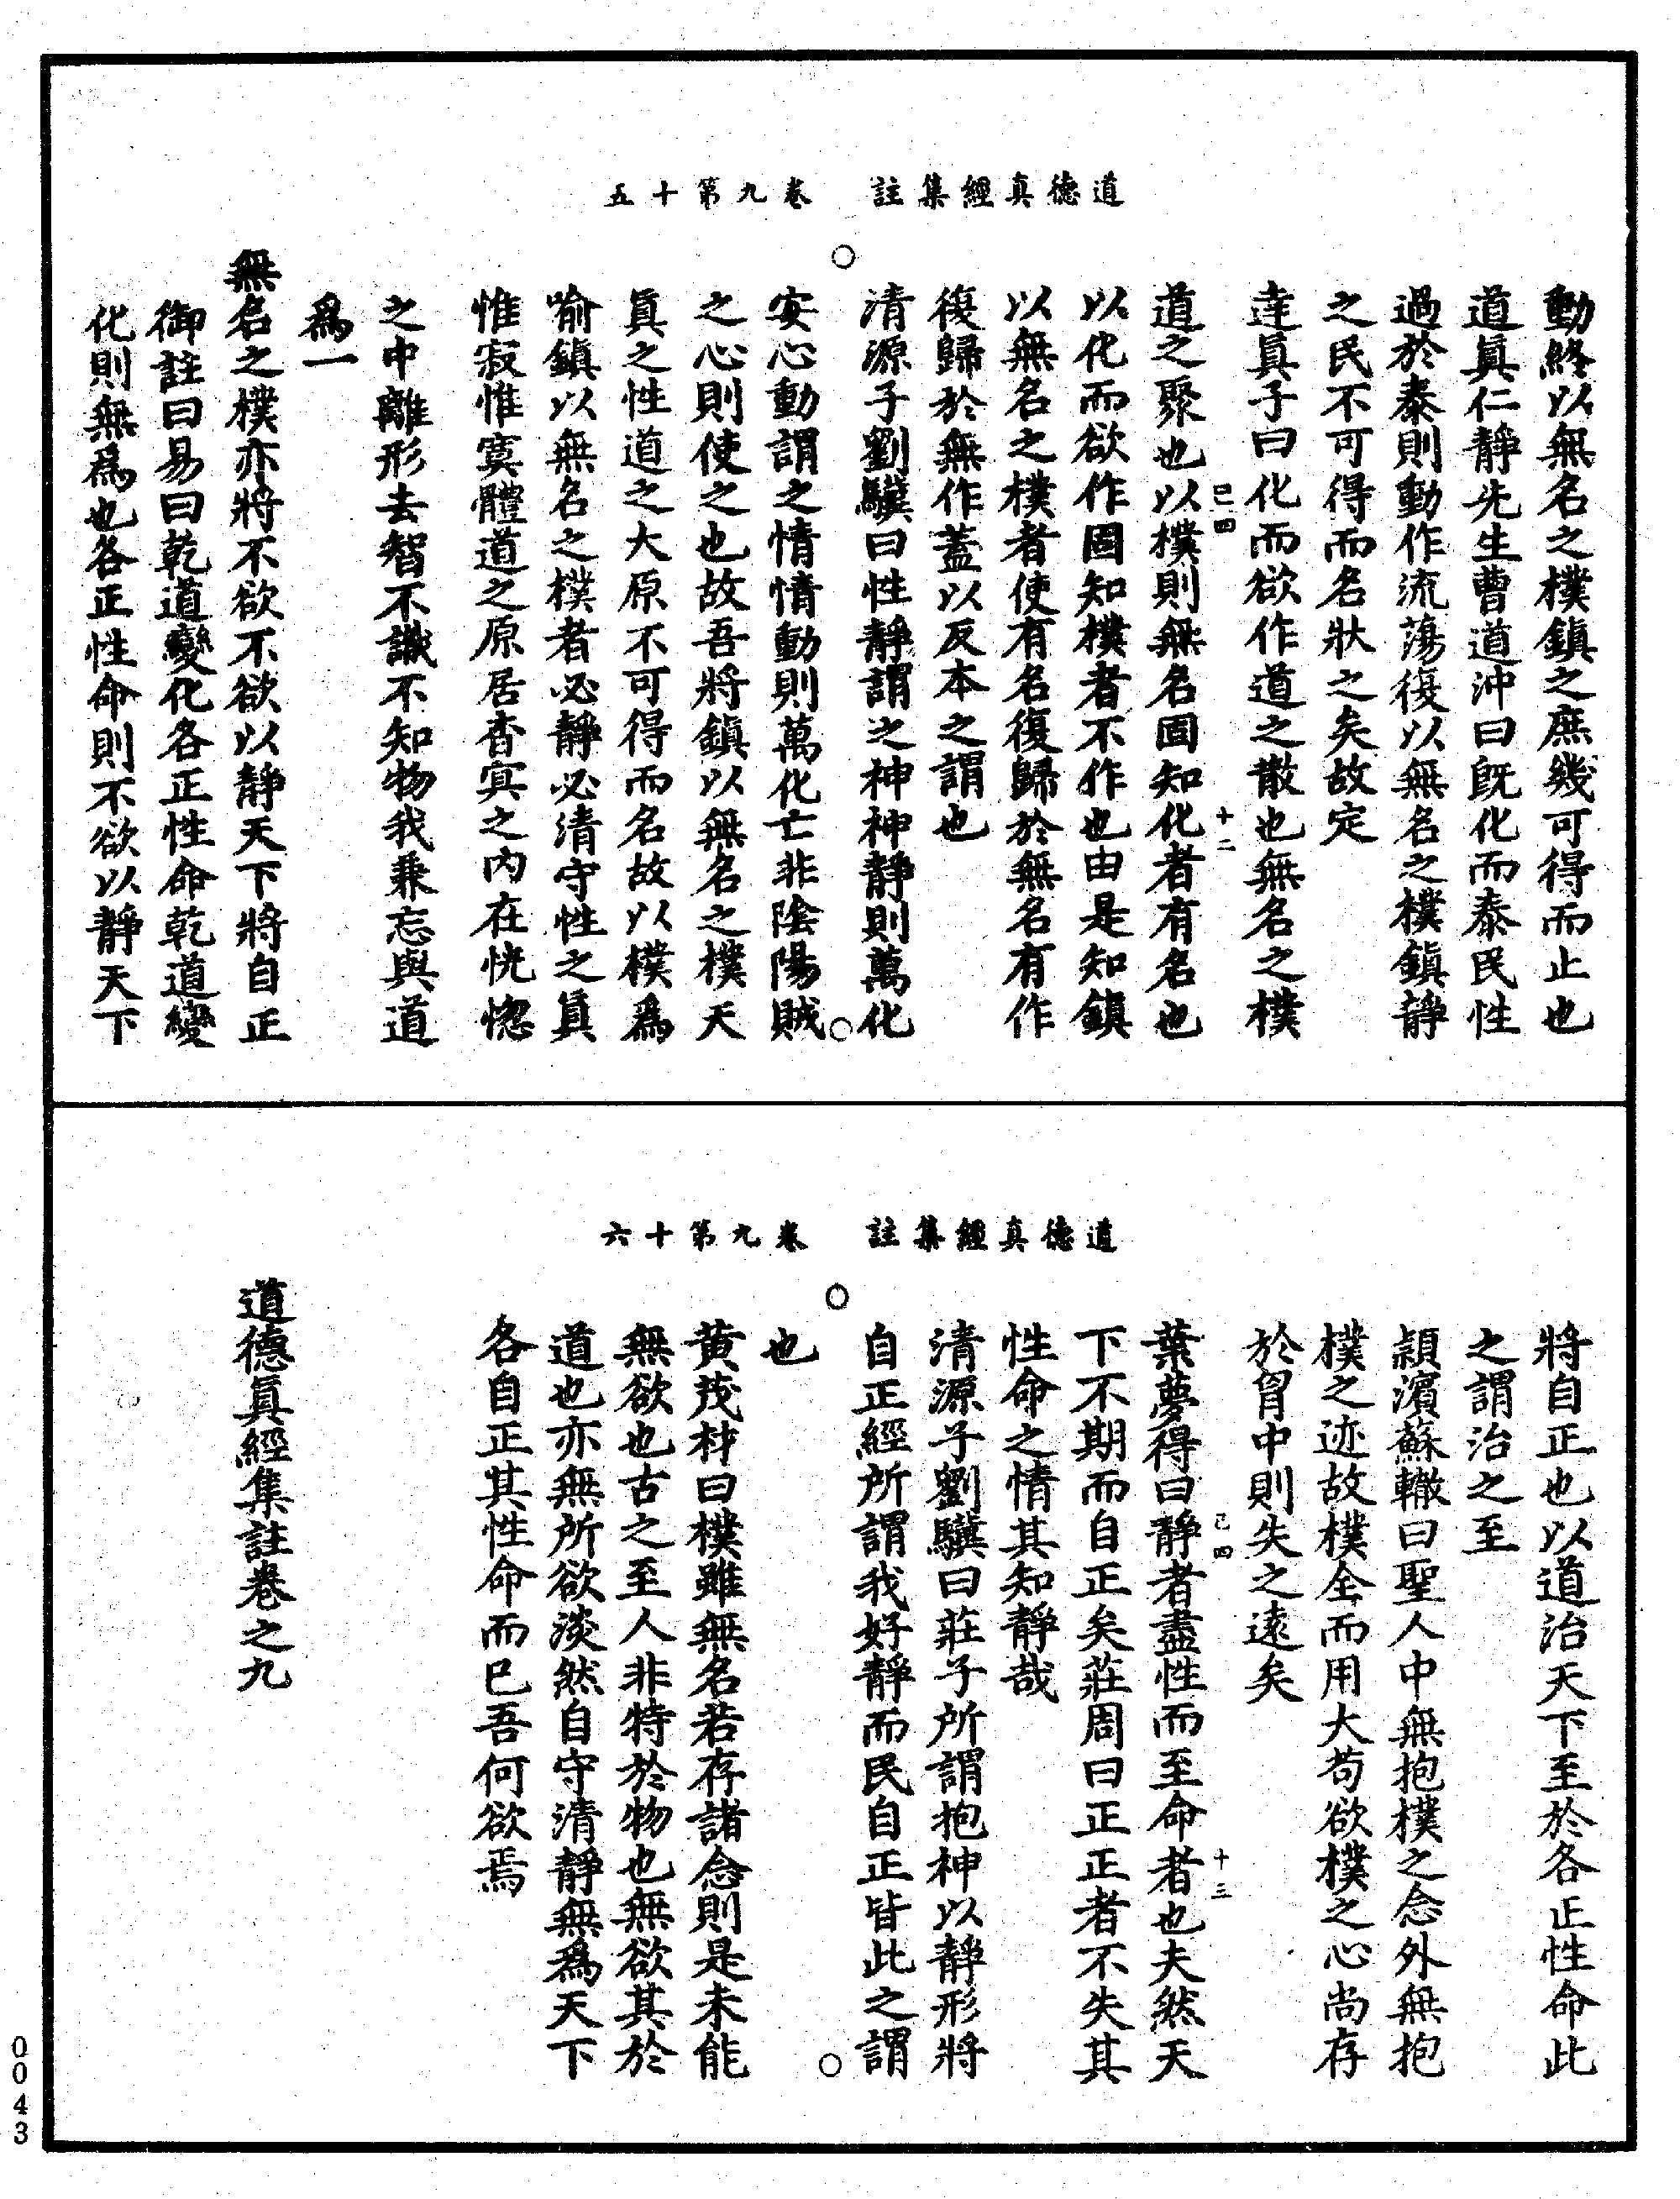 道德真經集註　卷九第十五
動終以無名之樸鎮之庶幾可得而止也
道眞仁靜先生曹道沖曰旣化而泰民性
過於泰則動作流蕩復以無名之樸鎮靜
之民不可得而名狀之矣故定
達眞子曰化而欲作道之散也無名之樸
已四　十二
道之聚也以樸則無名固知化者有名也
以化而欲作固知樸者不作也由是知鎮
以無名之樸者使有名復歸於無名有作
復歸於無作蓋以反本之謂也
清源子劉驥曰性靜謂之神神靜則萬化
安心動謂之情情動則萬化亡非陰陽賊
之心則使之也故吾將鎮以無名之樸天
眞之性道之大原不可得而名故以樸爲
喻鎮以無名之樸者必靜必清守性之眞
惟寂惟寞體道之原居杳冥之內在恍惚
之中離形去智不識不知物我兼忘與道
爲一
無名之樸亦將不欲不欲以靜天下將自正
御註曰易曰乾道變化各正性命乾道變
化則無爲也各正性命則不欲以靜天下
道德真經集註　卷九第十六
將自正也以道治天下至於各正性命此
之謂治之至
潁濱蘇轍曰聖人中無抱樸之念外無抱
樸之迹故樸全而用大苟欲樸之心尚存
於胷中則失之遠矣
己四　十三
葉夢得曰靜者盡性而至命者也夫然天
下不期而自正矣莊周曰正正者不失其
性命之情其知靜哉
清源子劉驥曰莊子所謂抱神以靜形將
自正經所謂我好靜而民自正皆此之謂
也
黃茂材曰樸雖無名若存諸念則是未能
無欲也古之至人非特於物也無欲其於
道也亦無所欲淡然自守清靜無爲天下
各自正其性命而已吾何欲焉
道德眞經集註卷之九
0043